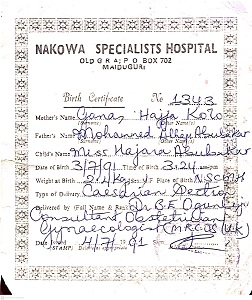 NAKOWA SPECIALISTS HOSPITAL
OLD G R A; P O BOX 702
MAIDUGURI
Birth Certificate No 1343
Mother's Name Gana Hajja Koro
(Surname) (Other Names)
Father's Name Mohammed Abubakar
Child's Name Miss Hajara Abubakar
Date of Birth 3/7/91 Time of Birth 3.24
Weight at Birth 2.4kg
Type of Delivery Caesarian Section
Delivered by (Full Name & Rank) Dr B.F.
Consultant Obstetrician
Gynaecologist (MRCOG) (UK)
Date Issued 4/7/1991
(STAMP)